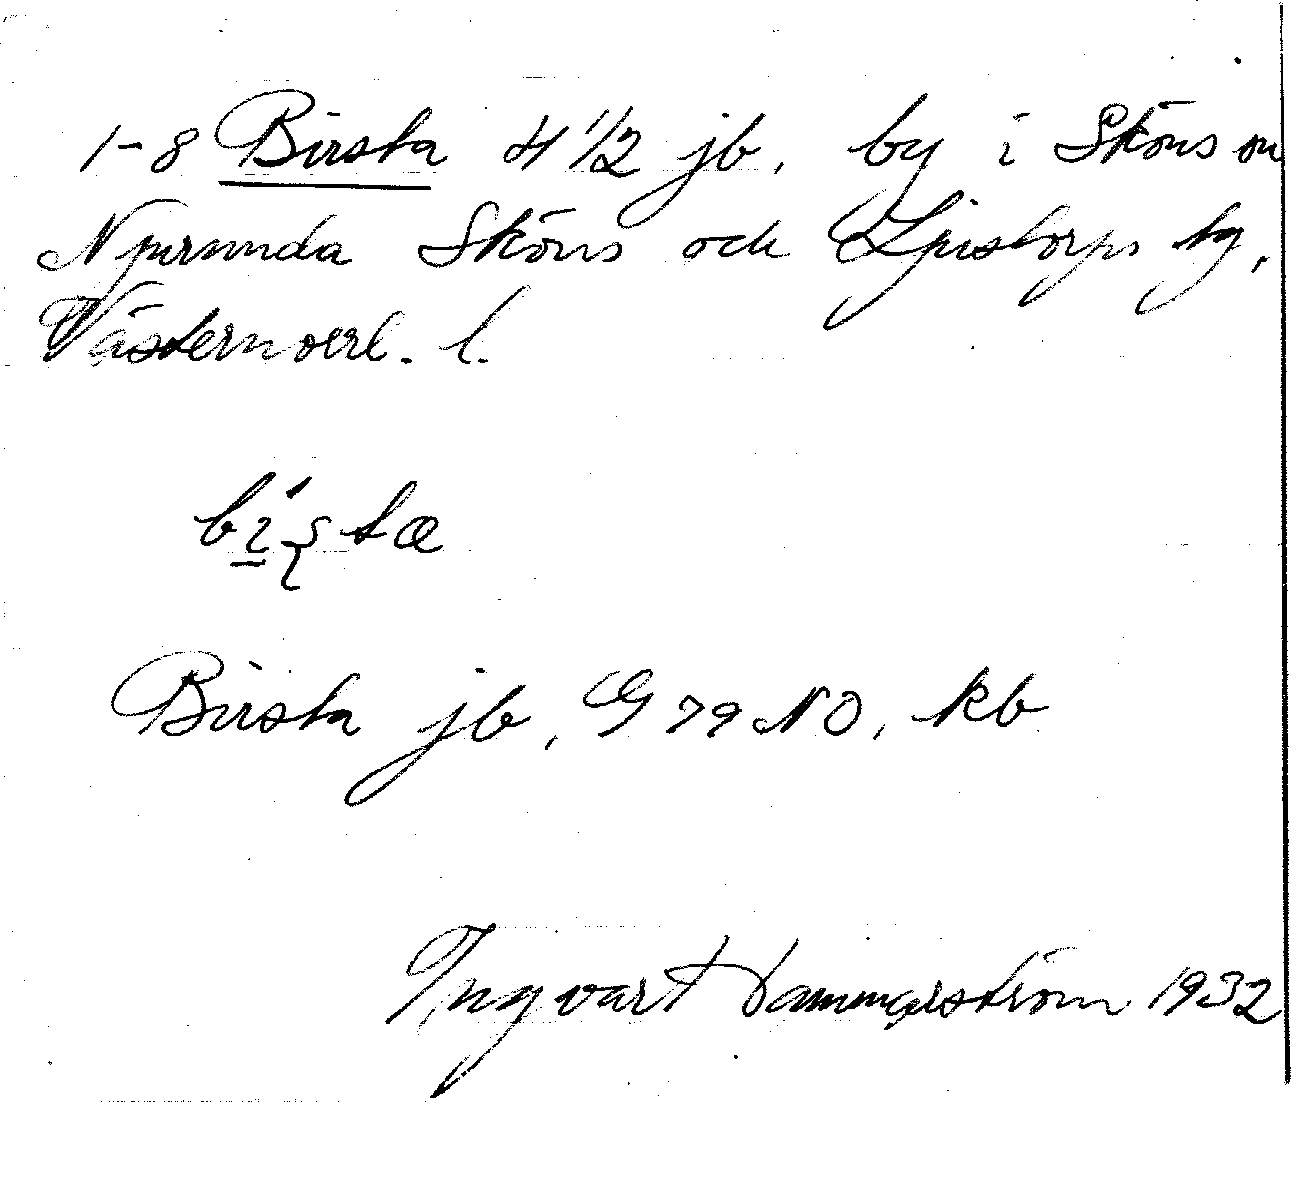 1-8 Birsta 4 1/2 jb, by i Sköns sn
Njurunda Sköns och Ljustorps tg,
Västernorrl. l.
Birsta jb, G 79 NO, kb
Ingvart Hammarström 1932